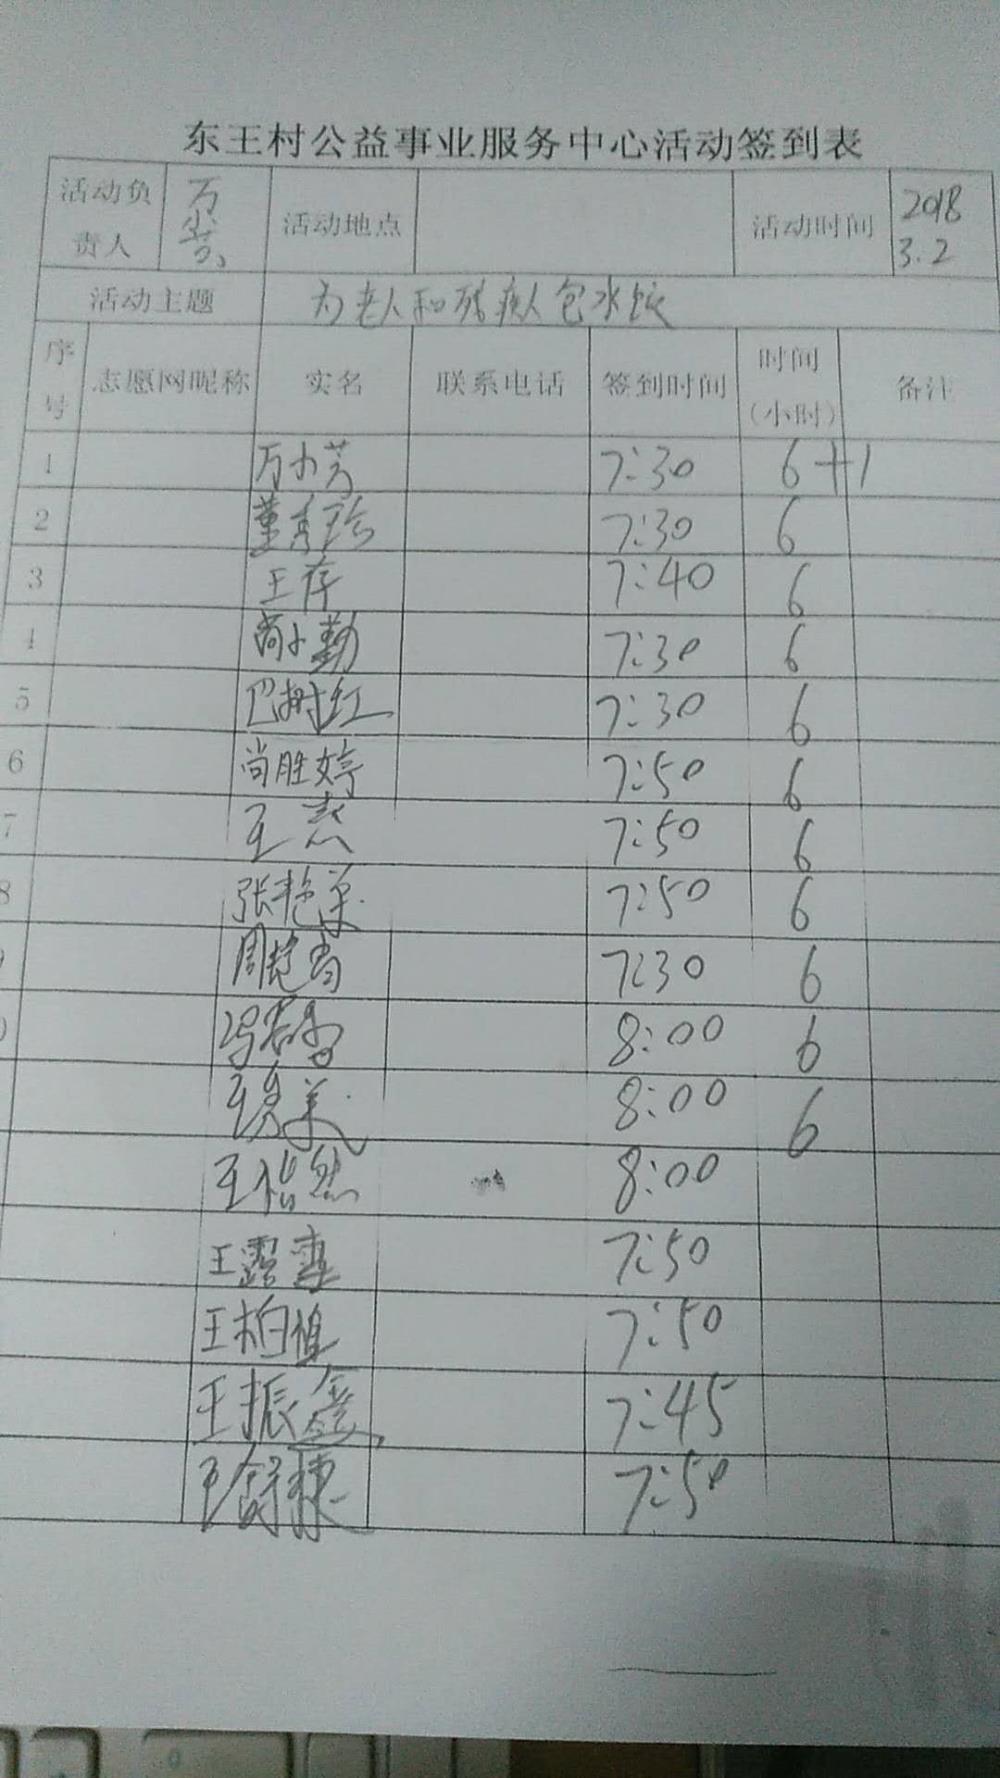 东王村公益事业服务中心活动签到表
活动负责人 万 活动地点 活动时间 2018 3.2
活动主题 为老人和残疾人包水饺
序号 志愿网昵称 实名 联系电话 签到时间 时间(小时) 备注
1 万小芳 7:30 6+1
2 董秀珍 7:30 6
3 王存 7:40 6
4 尚小勤 7:30 6
5 巴树红 7:30 6
6 尚胜婷 7:50 6
7 王慧 7:50 6
8 张艳菜 7:50 6
周艳 7:30 6
冯 8:00 6
王秀美 8:00 6
王 然 8:00
王露 7:50
王柏 7:50
王振鑫 7:45
王舒 7:50